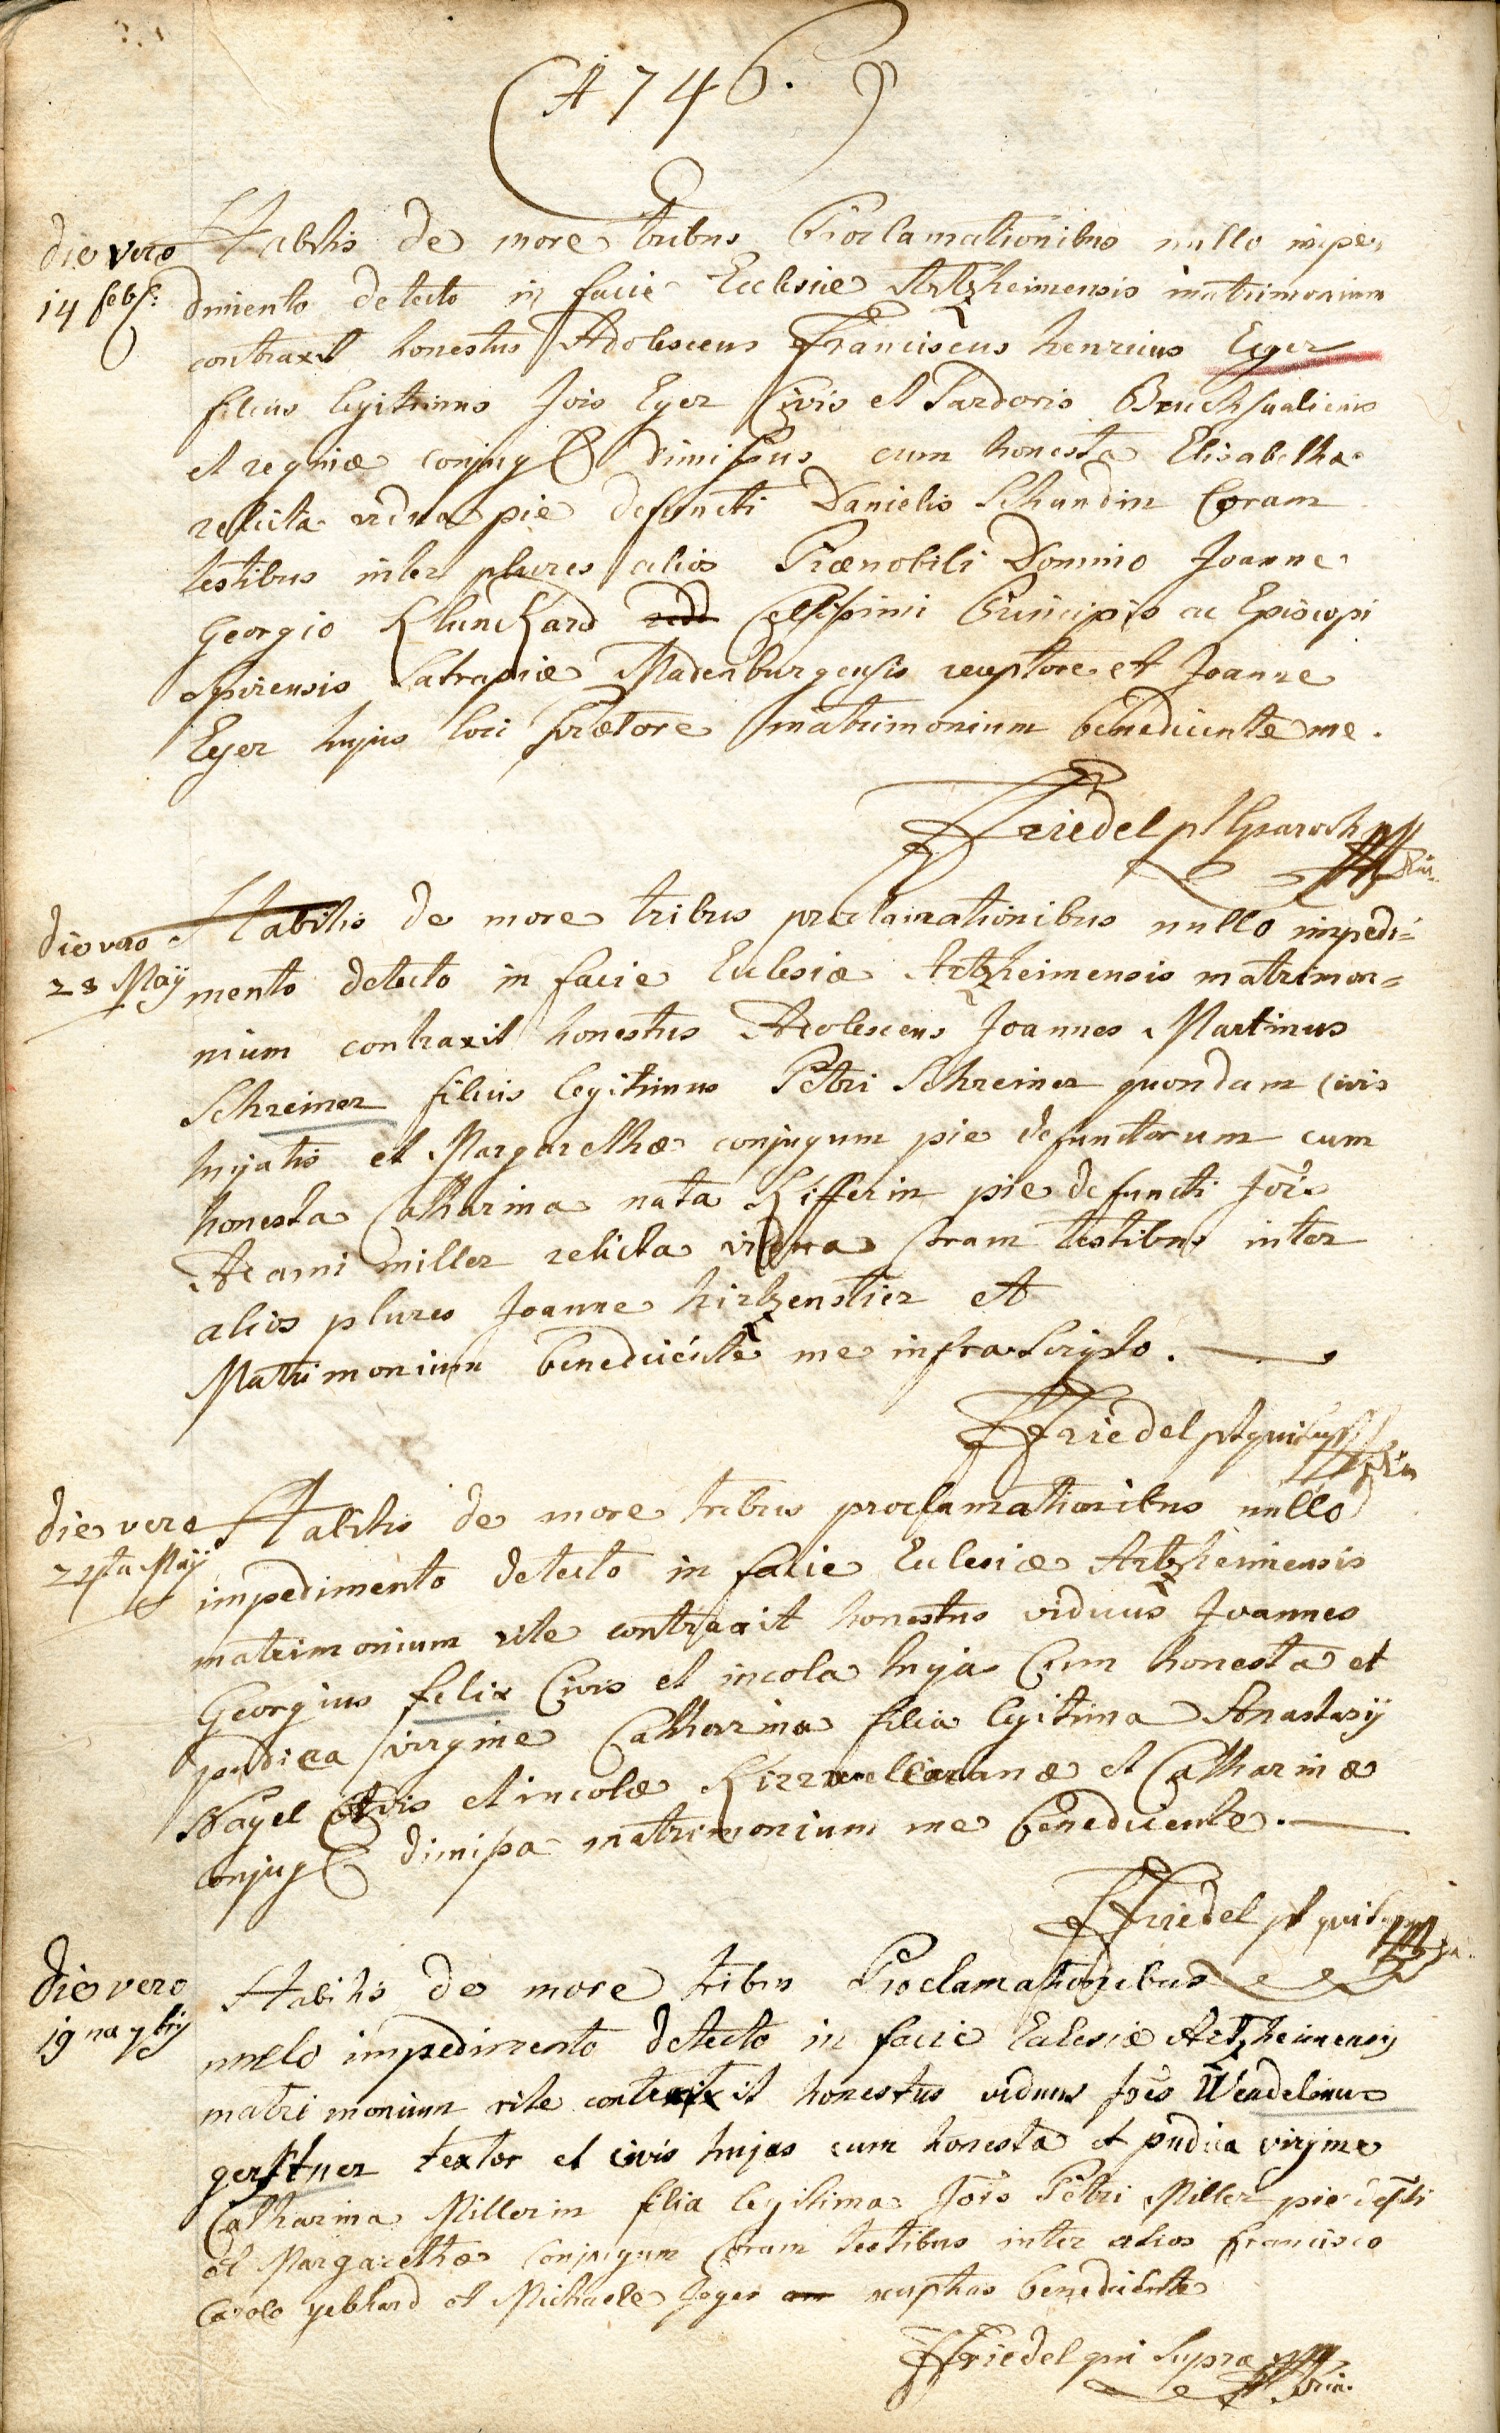 (1746.)
die vero
14 feb:
Habitis de more tribus Proclamationibus nullo impe,
dimento detecto in facie Ecclesiæ Artzheimensis matrimonium
contraxit honestus Adolescens Franciscus henricus Eger
filius legitimus Jois Eger Civis et Sardoris Bruchsaliensis
et reginæ conjug dimissus cum honesta Elisabetha
relicta vidua pie defuncti Danielis Schundin Coram
testibus inter plures alios Prænobili Domino Joanne
Georgio Klunckard Celsissimi Principis ac Episcopi
Spirensis Satrapiæ Madenburgensis receptore et Joanne
Eger hujus loci prætore matrimonium benedicente me.
Friedel pt paroch
die vero
23 Maÿ
Habitis de more tribus proclamationibus nullo impedi=
mento detecto in facie Eclesiæ Artzheimensis matrimon=
nium contraxit honestus Adolescens Joannes Martinus
Schreiner filius legitimus Petri Schreiner quondam civis
hujatis et Margarethæ conjugum pie defunctorum cum
honesta Catharina nata Kifferin pie defuncti Jois
Adami miller relicta vidua Coram testibus inter
alios plures Joanne hirtzenstier et
Matrimonium benedicente me infra Scripto.
Friedel pt qui sup
die vero
24ta Maÿ
Habitis de more tribus proclamationibus nullo
impedimento detecto in facie Eclesiæ Artzheimensis
matrimonium rite contraxit honestus viduus Joannes
Georgius felix Civis et incola hujas Cum honesta et
pudica virgine Catharina filia legitima Anastasÿ
Nagel Civis et incolæ et Catharinæ
conjug dimissa matrimonium me benedicente.
Friedel pt qui supra
die vero
19na 7bris
Habitis de more tribus Proclamationibus
nullo impedimento detecto in facie Eclesiæ Artzheimensis
matrimonium rite contraxit honestus viduus Jois Wendelinus
gerstner textor et civis hujas cum honesta et pudica virgine
Catharina Millerin filia legitima Jois Petri Miller pie defti
et Margarethæ Conjugum Coram testibus inter alios francisco
Carolo gebhard et Michaele Jeger nuptias benedicente
Friedel qui supra